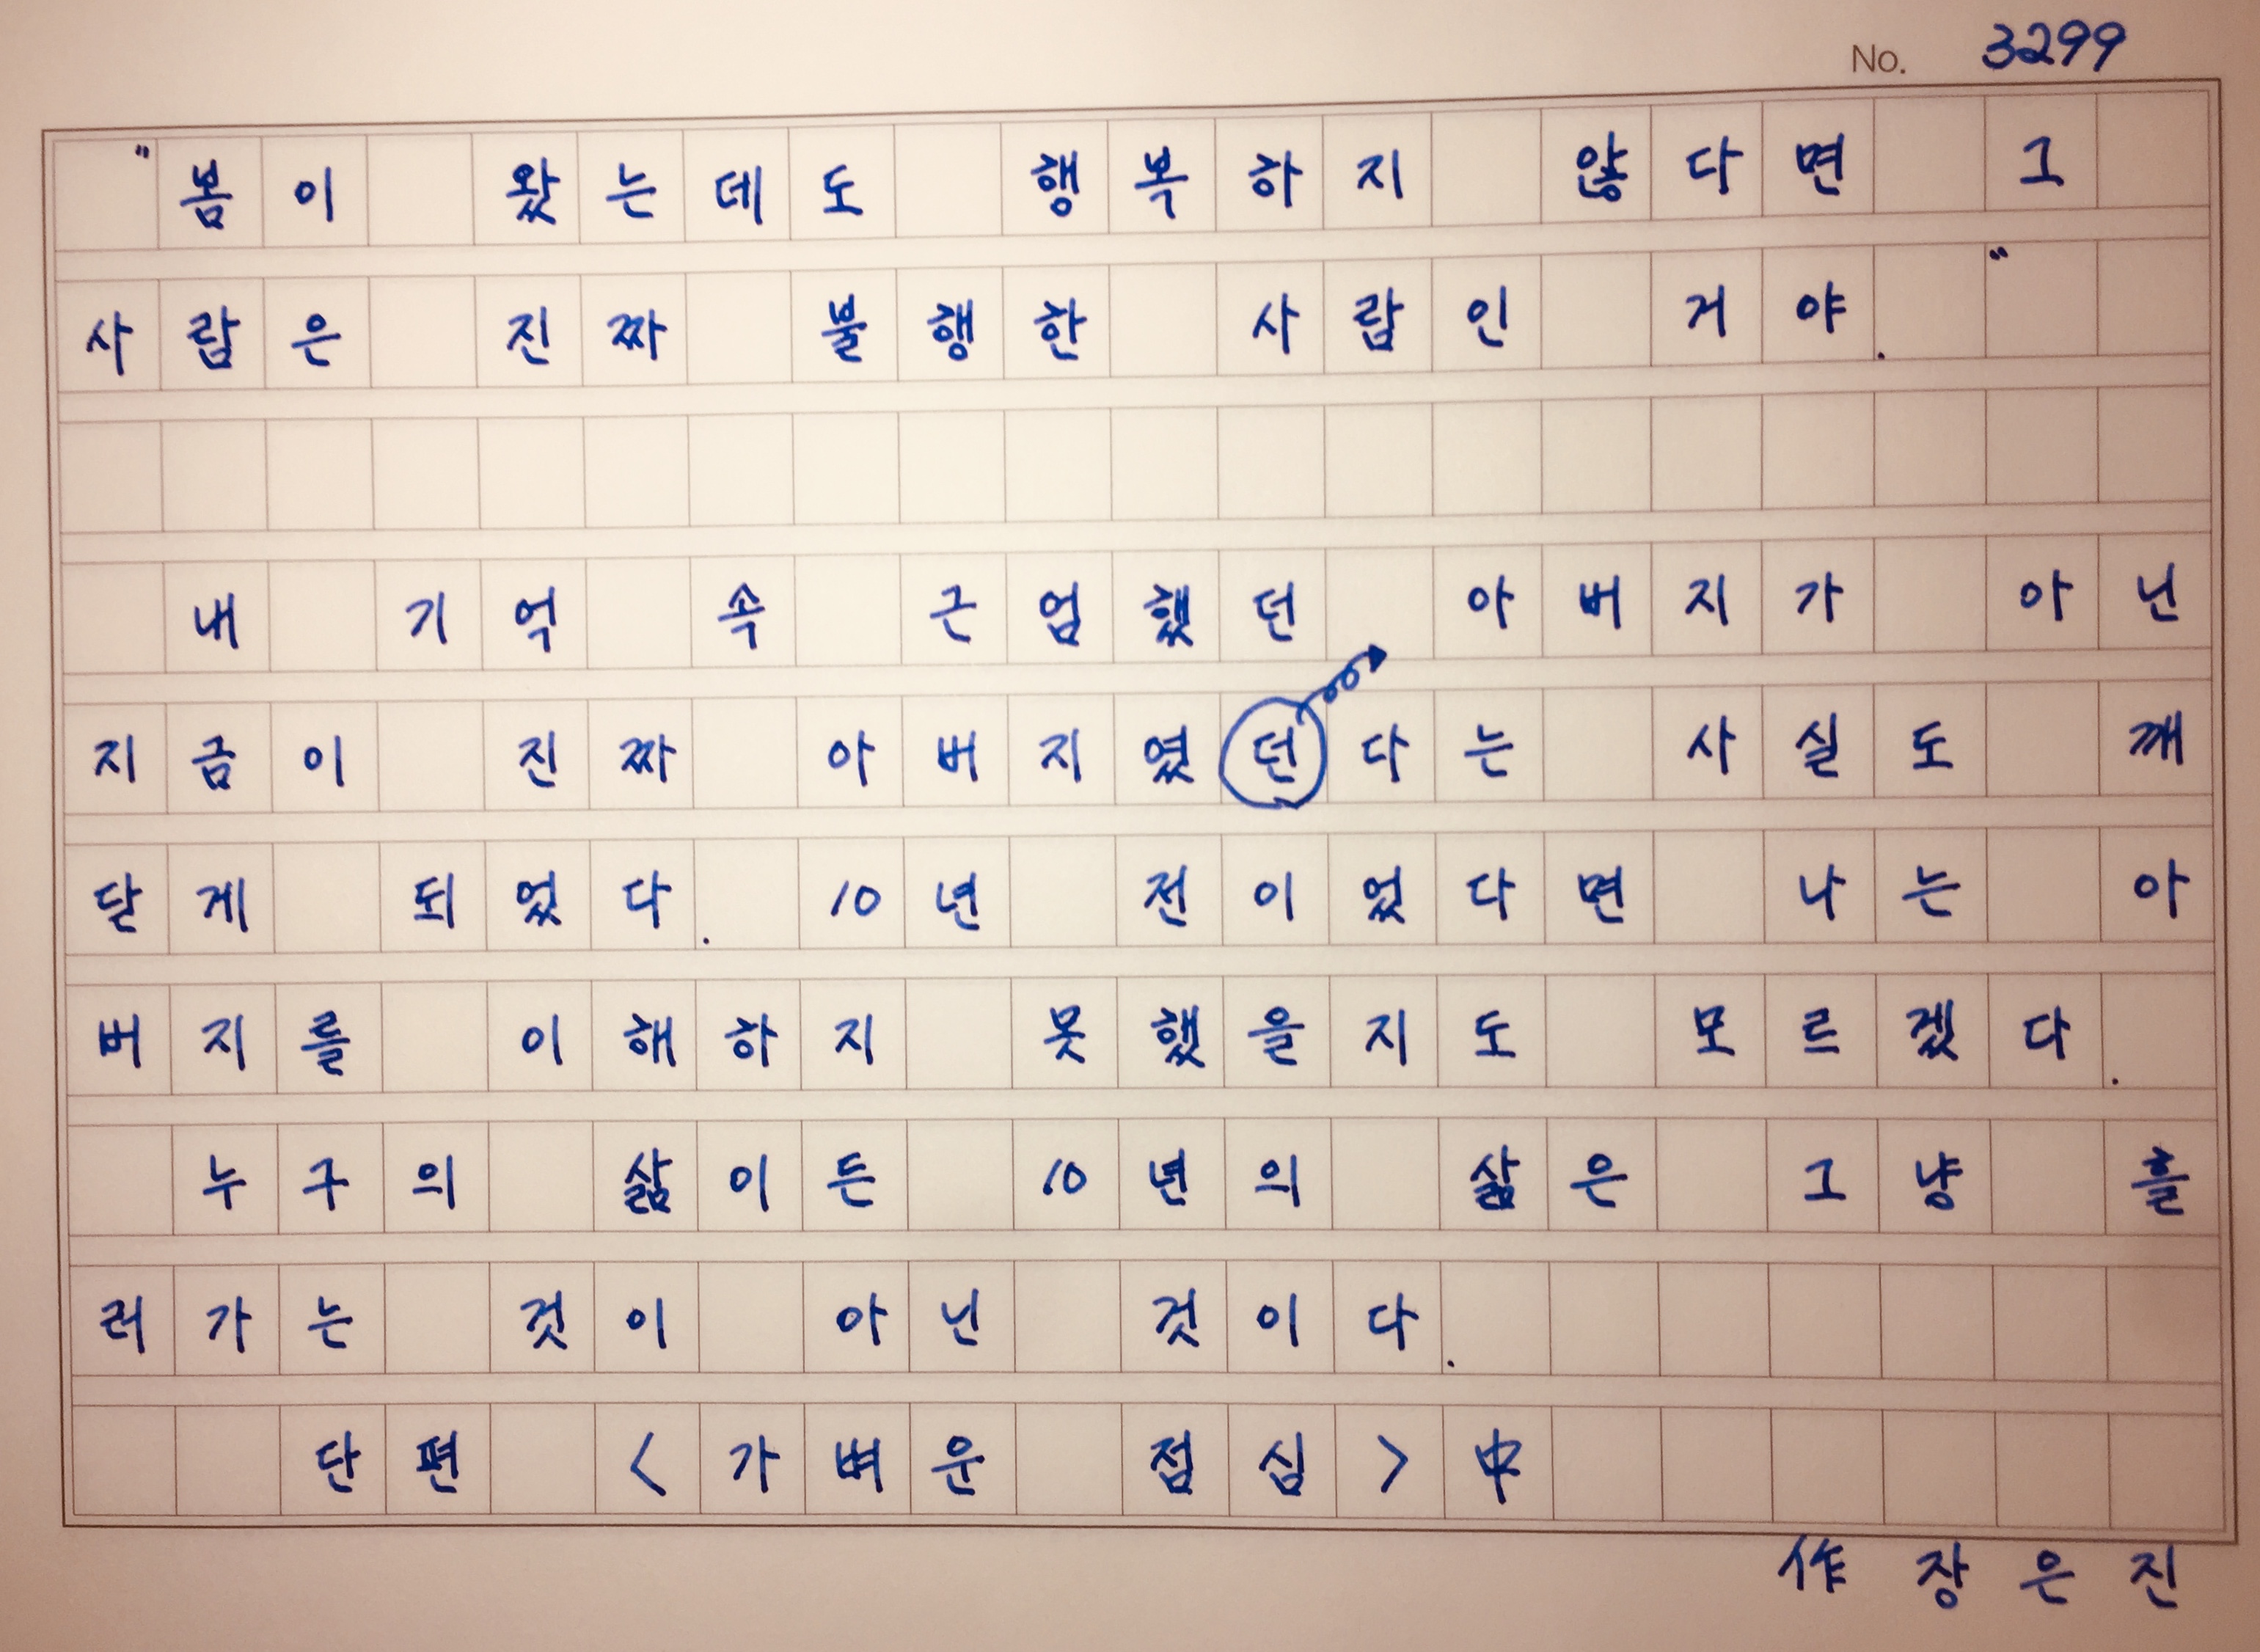 No. 3299
"봄이 왔는데도 행복하지 않다면 그
사람은 진짜 불행한 사람인 거야."
내 기억 속 근엄했던 아버지가 아닌
지금이 진짜 아버지였던다는 사실도 깨
닫게 되었다. 10년 전이었다면 나는 아
버지를 이해하지 못했을지도 모르겠다.
누구의 삶이든 10년의 삶은 그냥 흘
러가는 것이 아닌 것이다.
단편 <가벼운 점심> 中
作 장은진